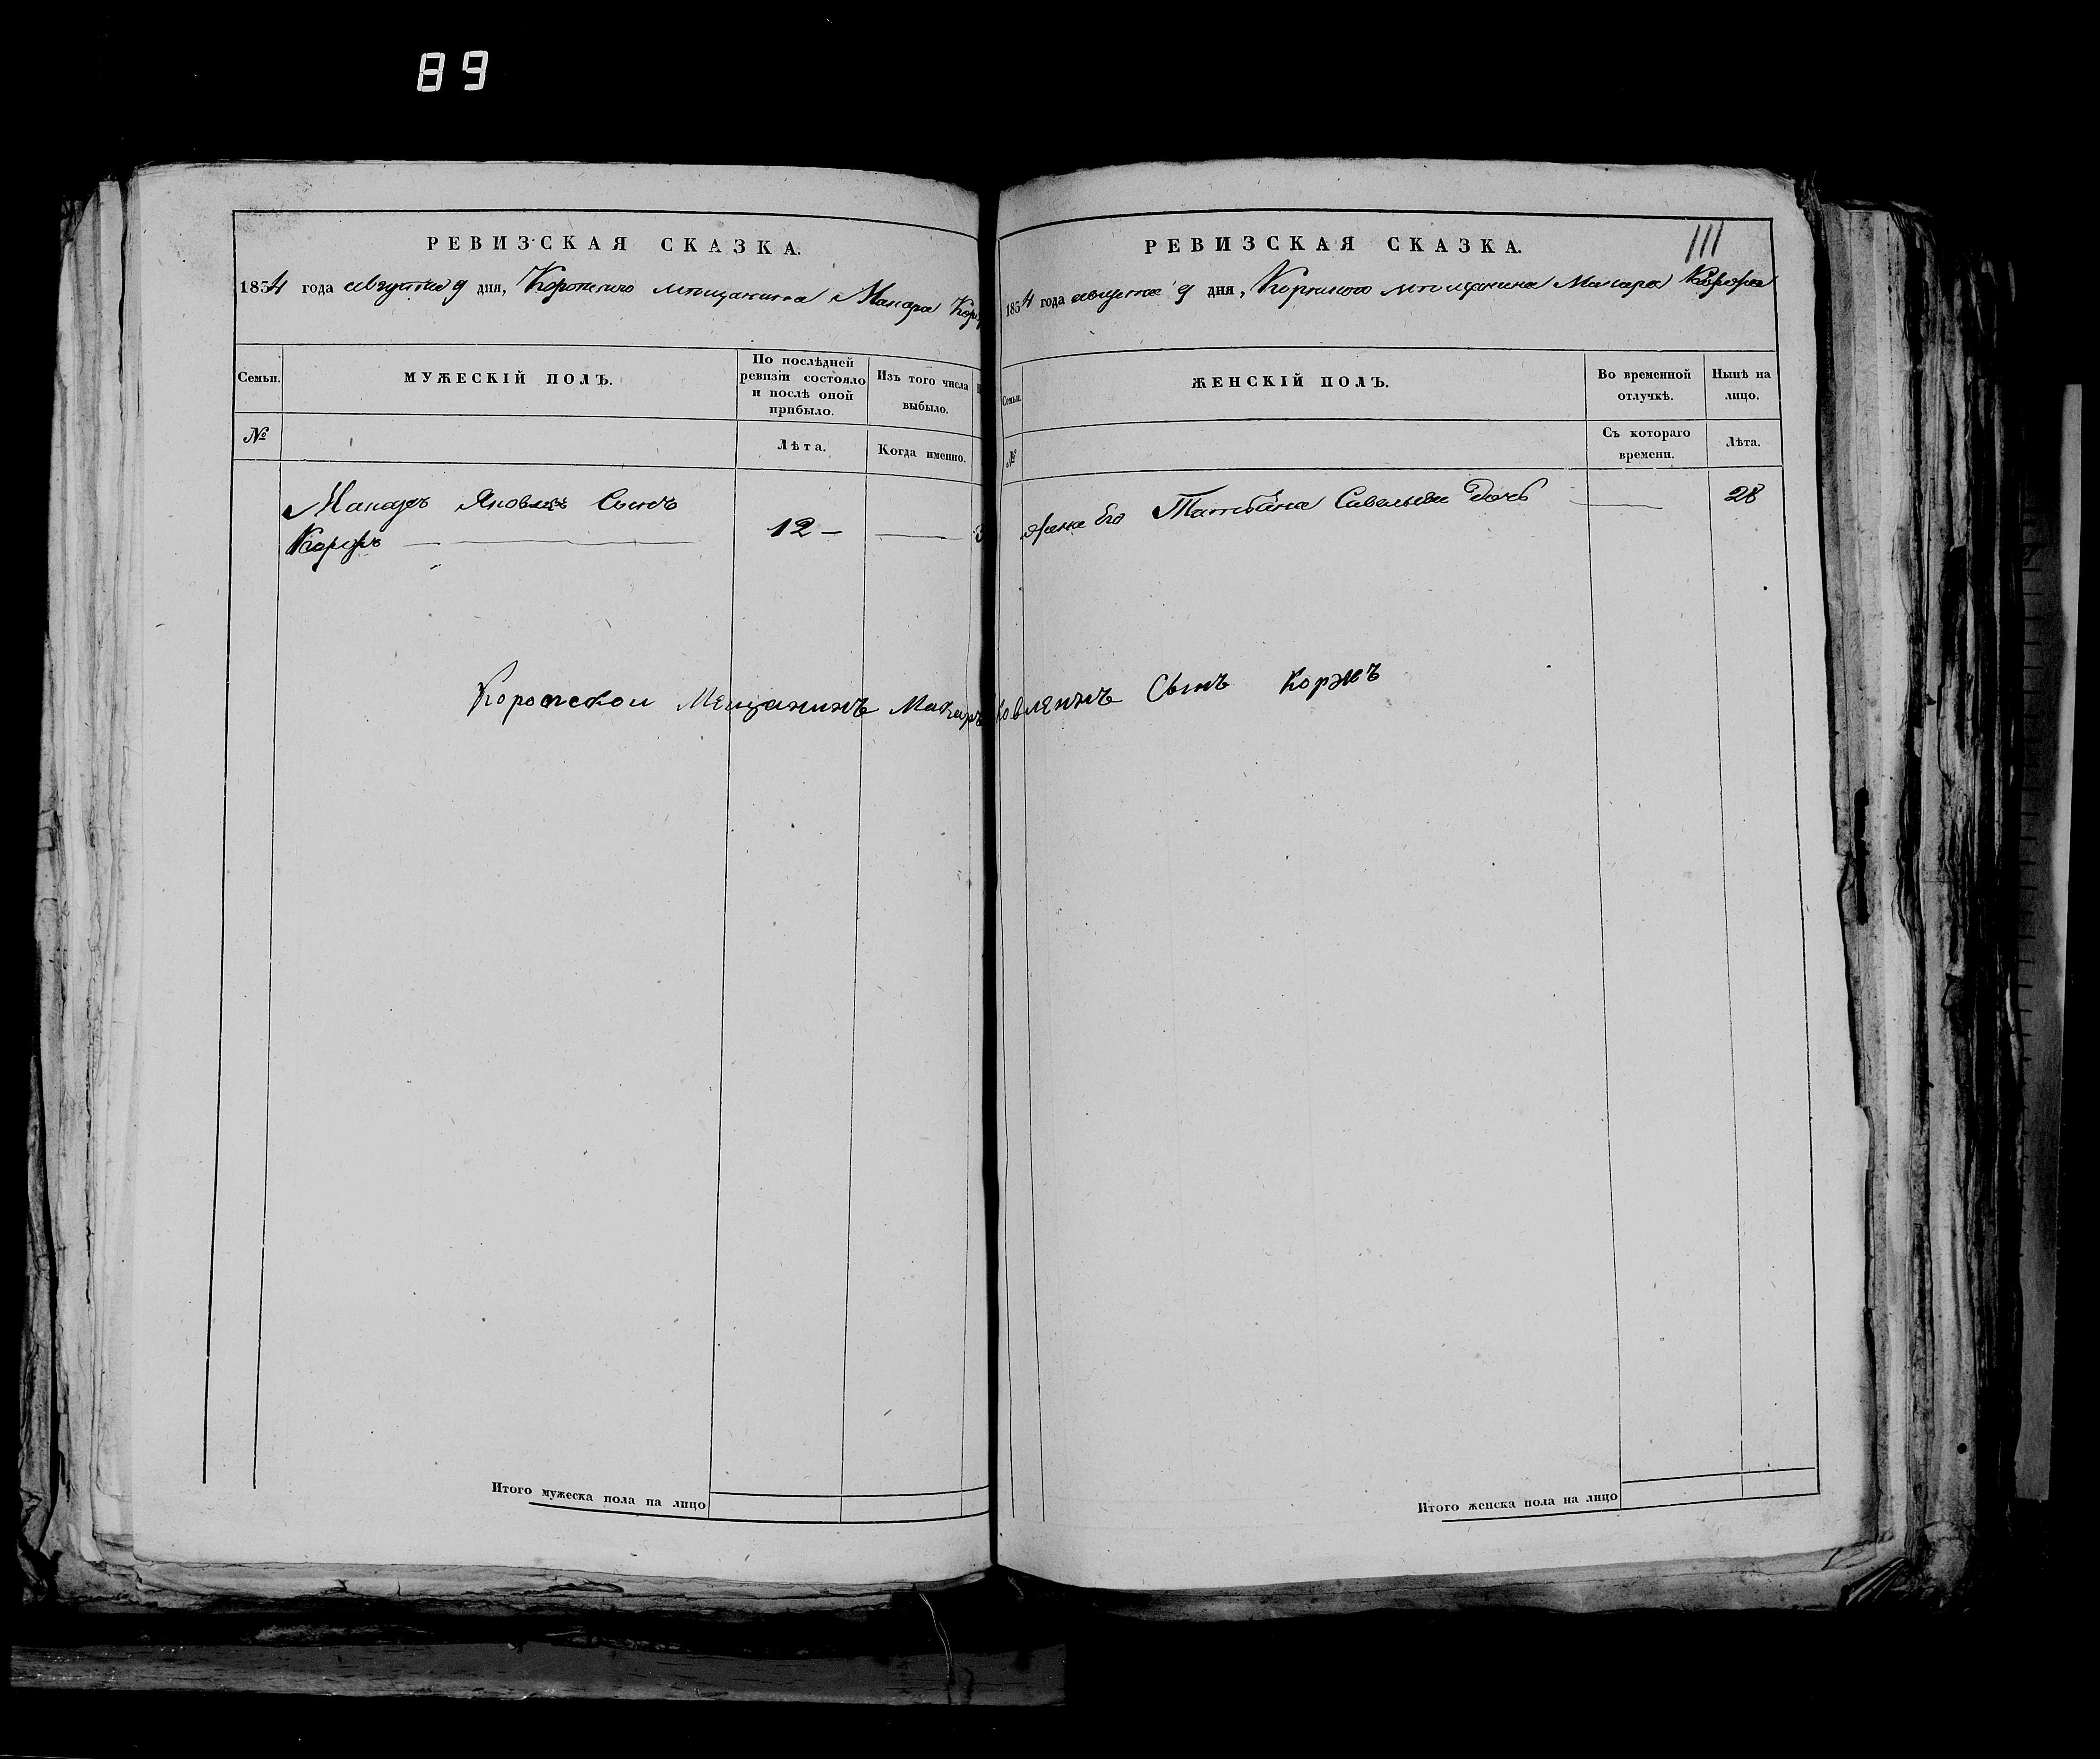 89
РЕВИЗСКАЯ СКАЗКА.
1834 года августа 9 дня, Коропского мещанина Макара Кор
Семьи.
МУЖЕСКІЙ ПОЛЪ.
По послѣдней ревизіи состояло и послѣ оной прибыло.
Изъ того числа выбыло.
№
Лѣта.
Когда именно.
Макаръ Яковлевъ Сынъ
Коржъ
12
Коропской Мещанинъ Макаръ
Итого мужеска пола на лицо
111
РЕВИЗСКАЯ СКАЗКА.
1834 года августа 9 дня, Коропского мещанина Макара Коржа
Семьи.
ЖЕНСКІЙ ПОЛЪ.
Во временной отлучкѣ.
Нынѣ на лицо.
№
Съ котораго времени.
Лѣта.
Жена Его Татьяна Савельева Дочь
28
ковленъ Сынъ Коржъ
Итого женска пола на лицо